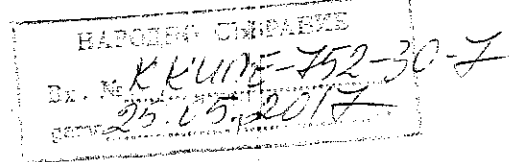 НАРОДНО СЪБРАНИЕ
Вх. № ККИПЕ-752-30-7
дата 25.05.2017